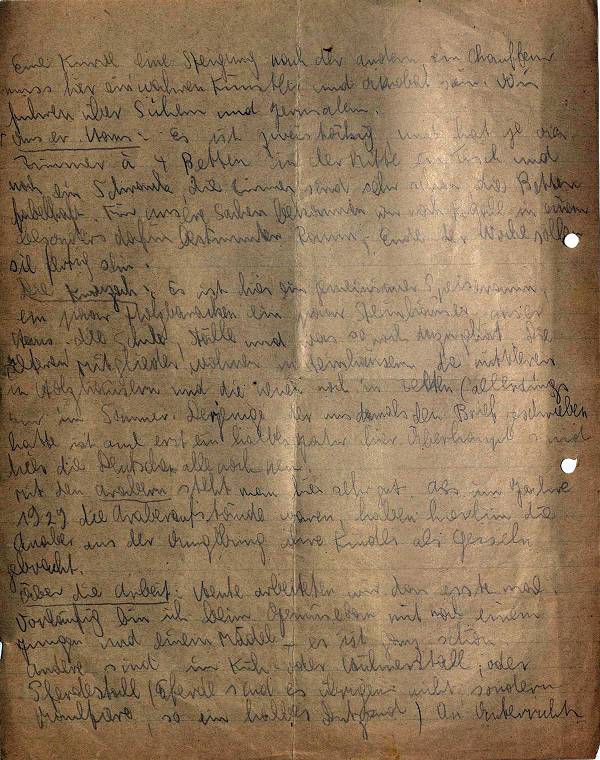 Eine Kurve eine Steigung nach der andern, ein Chauffeur
muss hier ein wahrer Künstler und Akrobat sein. Wir
fuhren über Sichem und Jerusalem.
Unser Haus: Es ist zweistöckig und hat je vier
Zimmer à 4 Betten in der Mitte ein Tisch und
noch ein Schrank die Zimmer sind sehr schön die Betten
fabelhaft. Für unsere Sachen bekommen wir noch Regale in einem
besonders dafür bestimmten Raum, Ende der Woche sollen
sie fertig sein.
Die Kwuzah: Es ist hier ein gemeinsamer Speiseraum,
ein paar Holzbaracken ein paar Steinhäuser, unser
Haus die Schule, Ställe und was so noch dazugehört. Die
älteren Mitglieder wohnen in Steinhäusern die mittleren
in Holzhäusern und die neuen noch in Zelten (allerdings
nur im Sommer. Derjenige der uns damals den Brief geschrieben
hatte ist auch erst ein halbes Jahr hier. Überhaupt sind
hier die Deutschen alle noch neu.
Mit den Arabern steht man hier sehr gut. Als im Jahre
1929 die Araberaufstände waren, haben hierhin die
Araber aus der Umgebung ihre Kinder als Geiseln
gebracht.
Über die Arbeit: Heute arbeiteten wir das erste mal.
Vorläufig bin ich beim Gemüsebau mit noch einem
Jungen und einem Mädel – es ist ganz schön
Andere sind im Kuh- oder Hühnerstall, oder
Pferdestall (Pferde sind es übrigens nicht sondern
Maultiere, so ein halbes Dutzend) An Unterricht